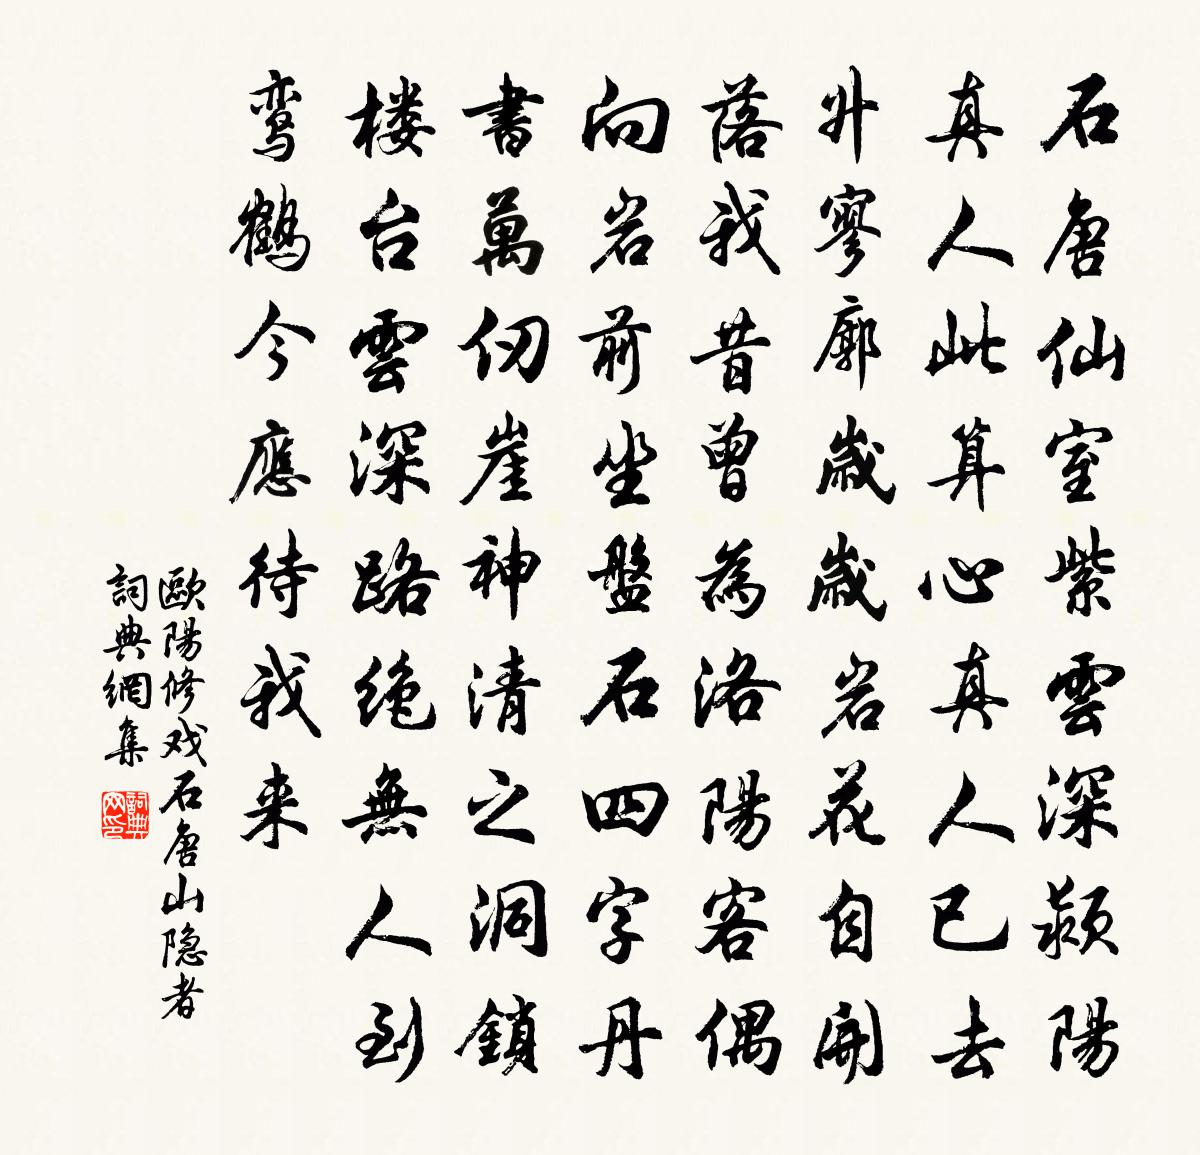 石唐仙室紫雲深潁陽
真人此算心真人已去
升寥廓歲歲岩花自開
落我昔曾為洛陽客偶
向岩前坐盤石四字丹
書萬仞崖神清之洞鎖
楼台雲深路絶無人到
鸾鶴今應待我来
歐陽修戏石唐山隐者
詞典網集
詞典网印